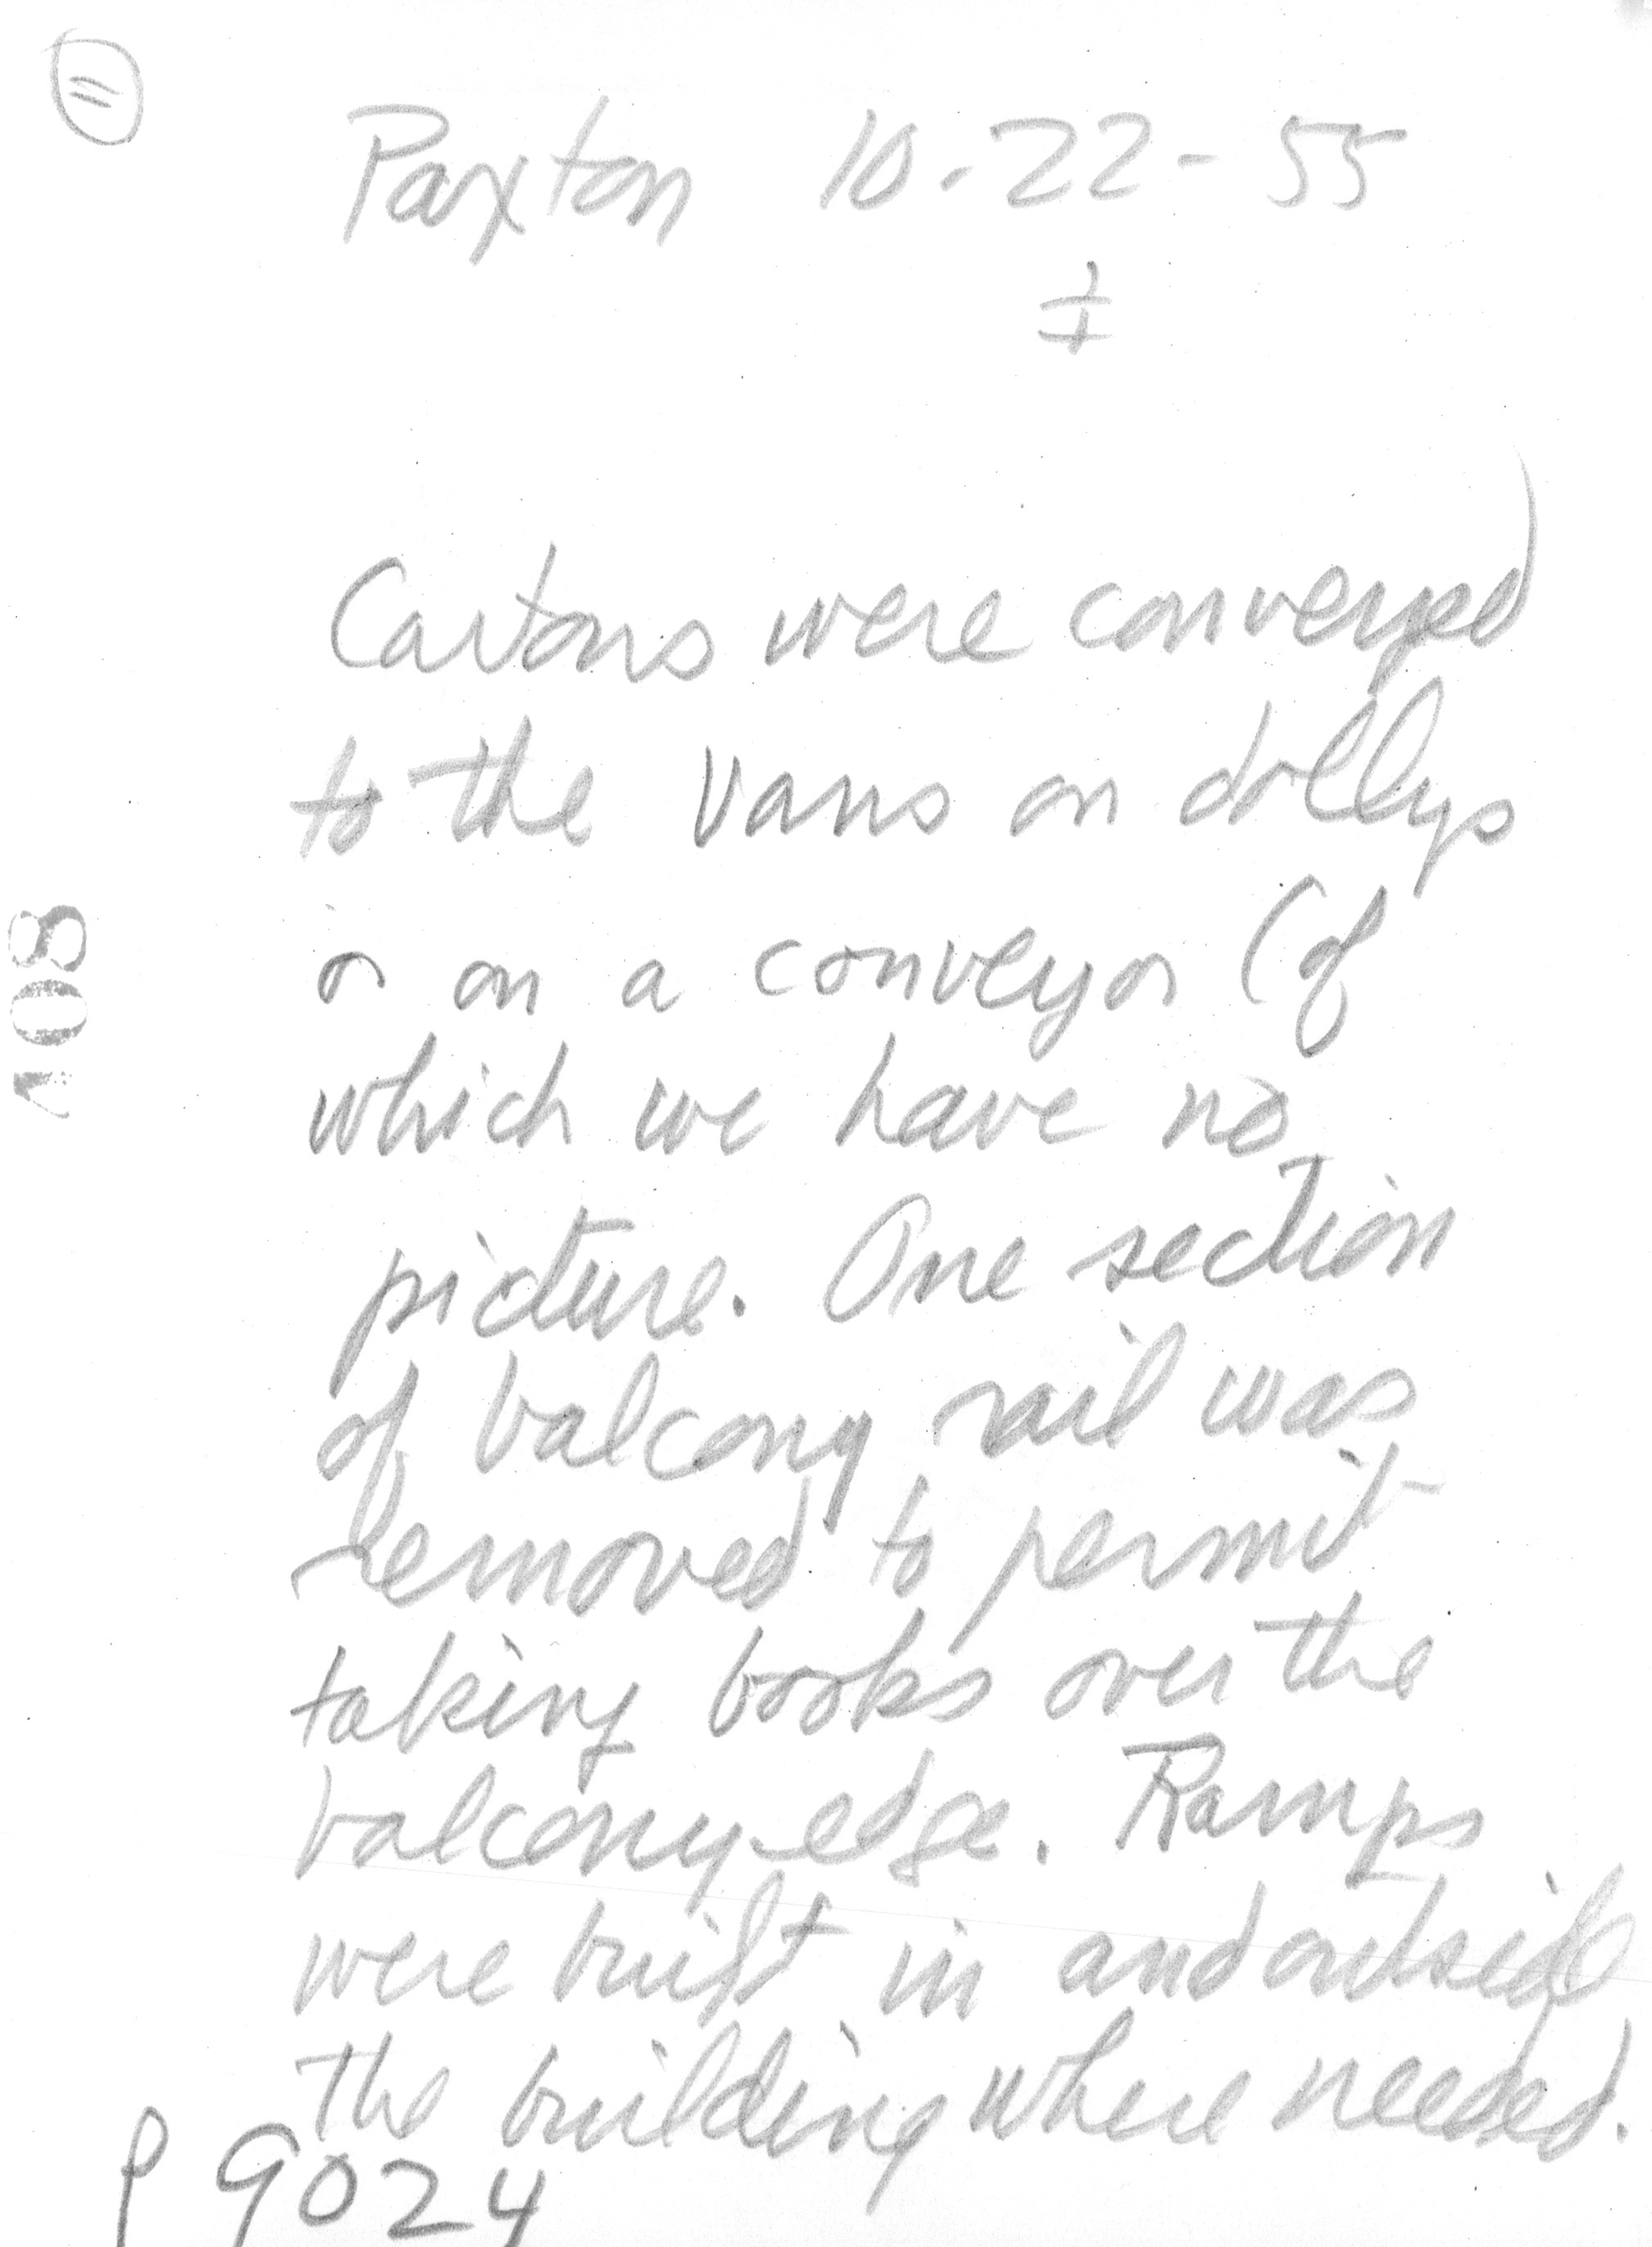 =
Paxton 10-22-55
‡
Cartons were conveyed
to the vans on dollys
or on a conveyor (of
which we have no
picture. One section
of balcony rail was
removed to permit
taking books over the
balcony edge. Ramps
were built in and outside
the building where needed.
P 9024